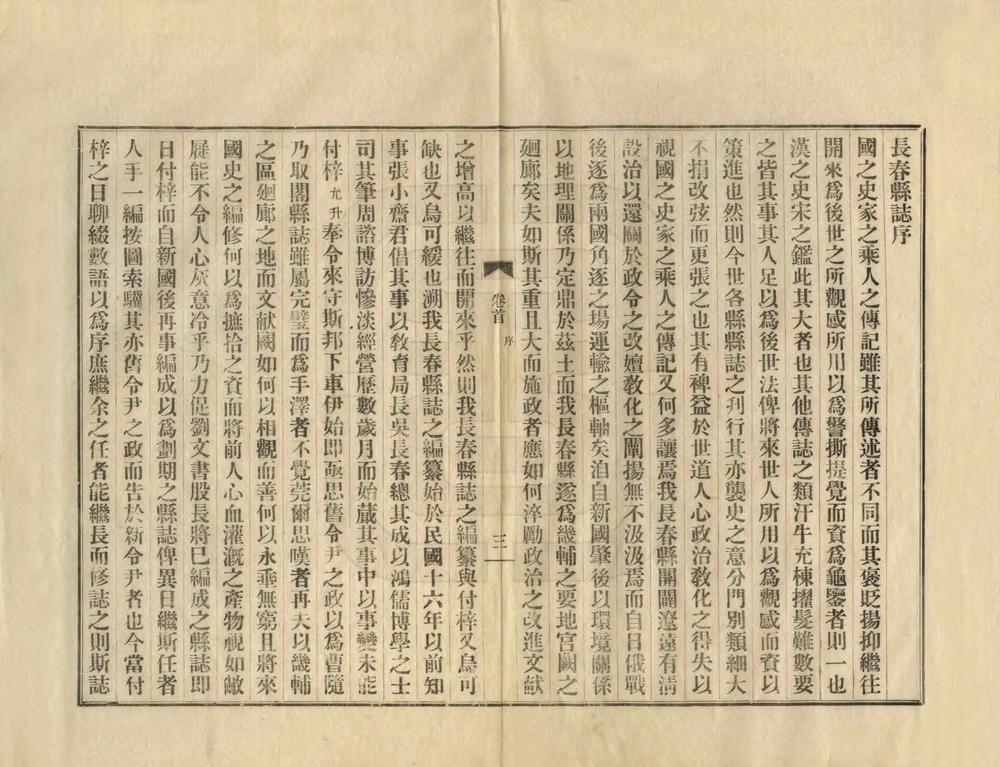 長春縣誌序
國之史家之乘人之傳記雖其所傳述者不同而其褒貶揚抑繼往
開來爲後世之所觀感所用以爲警撕提覺而資爲龜鑒者則一也
漢之史宋之鑑此其大者也其他傳誌之類汗牛充棟擢髮難數要
之皆其事其人足以爲後世法俾將來世人所用以爲觀感而資以
策進也然則今世各縣縣誌之刋行其亦襲史之意分門別類細大
不捐改弦而更張之也其有裨益於世道人心政治敎化之得失以
視國之史家之乘人之傳記又何多讓焉我長春縣開闢遼遠有淸
設治以還關於政令之改嬗敎化之闡揚無不汲汲焉而自日俄戰
後逐爲兩國角逐之場運輸之樞軸矣洎自新國肇後以環境關係
以地理關係乃定鼎於茲土而我長春縣遂爲畿輔之要地宮闕之
廻廊矣夫如斯其重且大而施政者應如何淬勵政治之改進文献
卷首
序
三
之增高以繼往而開來乎然則我長春縣誌之編纂與付梓又烏可
缺也又烏可緩也溯我長春縣誌之編纂始於民國十六年以前知
事張小齋君倡其事以敎育局長吳長春總其成以鴻儒博學之士
司其筆周諮博訪慘淡經營歷數歲月而始蕆其事中以事變未能
付梓允升奉令來守斯邦下車伊始即亟思舊令尹之政以爲曹隨
乃取閤縣誌雖屬完璧而爲手澤者不覺莞爾思嘆者再夫以畿輔
之區廻廊之地而文献闕如何以相觀而善何以永垂無窮且將來
國史之編修何以爲摭拾之資而將前人心血灌漑之產物視如敝
屣能不令人心灰意冷乎乃力促劉文書股長將已編成之縣誌即
日付梓而自新國後再事編成以爲劃期之縣誌俾異日繼斯任者
人手一編按圖索驥其亦舊令尹之政而告於新令尹者也今當付
梓之日聊綴數語以爲序庶繼余之任者能繼長而修誌之則斯誌